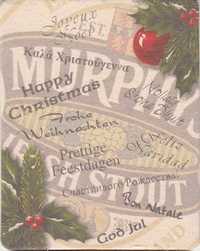 Joyeux
Noël
EST.
Καλά Χριστούγεννα
MURPHY'S
Happy
Christmas
Nollaig
Shona Duit
Frohe
Weihnachten
Feliz
Navidad
Prettige
Feestdagen
IRISH STOUT
Счастливого Рождества!
Bon Natale
God Jul